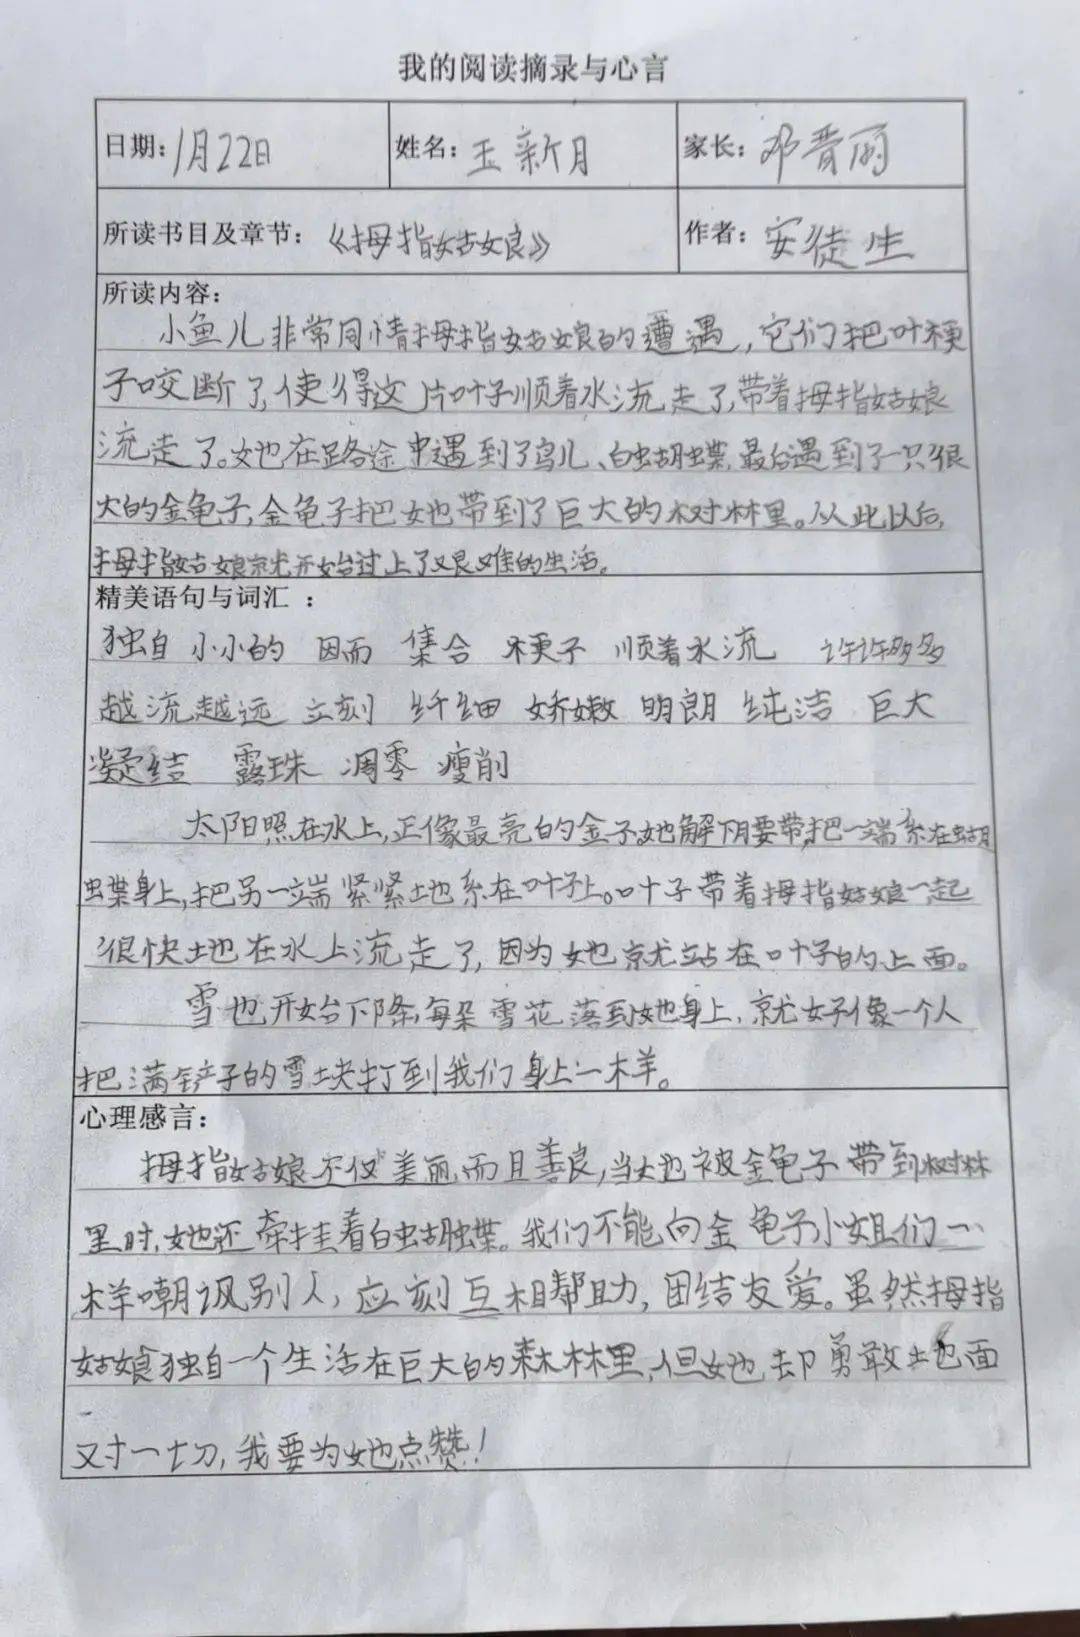 我的阅读摘录与心言
日期：1月22日 姓名：王新月 家长：邓晋丽
所读书目及章节：《拇指姑娘》 作者：安徒生
所读内容：
小鱼儿非常同情拇指姑娘的遭遇，它们把叶梗
子咬断了，使得这片叶子顺着水流走了，带着拇指姑娘
流走了。她在路途中遇到了鸟儿、白蝴蝶，最后遇到了一只很
大的金龟子，金龟子把她带到了巨大的树林里。从此以后，
拇指姑娘就开始过上了艰难的生活。
精美语句与词汇：
独自 小小的 因而 集合 梗子 顺着水流 许许多多
越流越远 立刻 纤细 娇嫩 明朗 纯洁 巨大
凝结 露珠 凋零 瘦削
太阳照在水上，正像最亮的金子，她解下腰带，把一端系在蝴
蝶身上，把另一端紧紧地系在叶子上。叶子带着拇指姑娘一起
很快地在水上流走了，因为她就站在叶子的上面。
雪也开始下降，每朵雪花落到她身上，就好像一个人
把满铲子的雪块打到我们身上一样。
心理感言：
拇指姑娘不仅美丽，而且善良，当她被金龟子带到树林
里时，她还牵挂着白蝴蝶。我们不能向金龟子小姐们一
样嘲讽别人，应刻互相帮助，团结友爱。虽然拇指
姑娘独自一个生活在巨大的森林里，但她却勇敢地面
对一切，我要为她点赞！